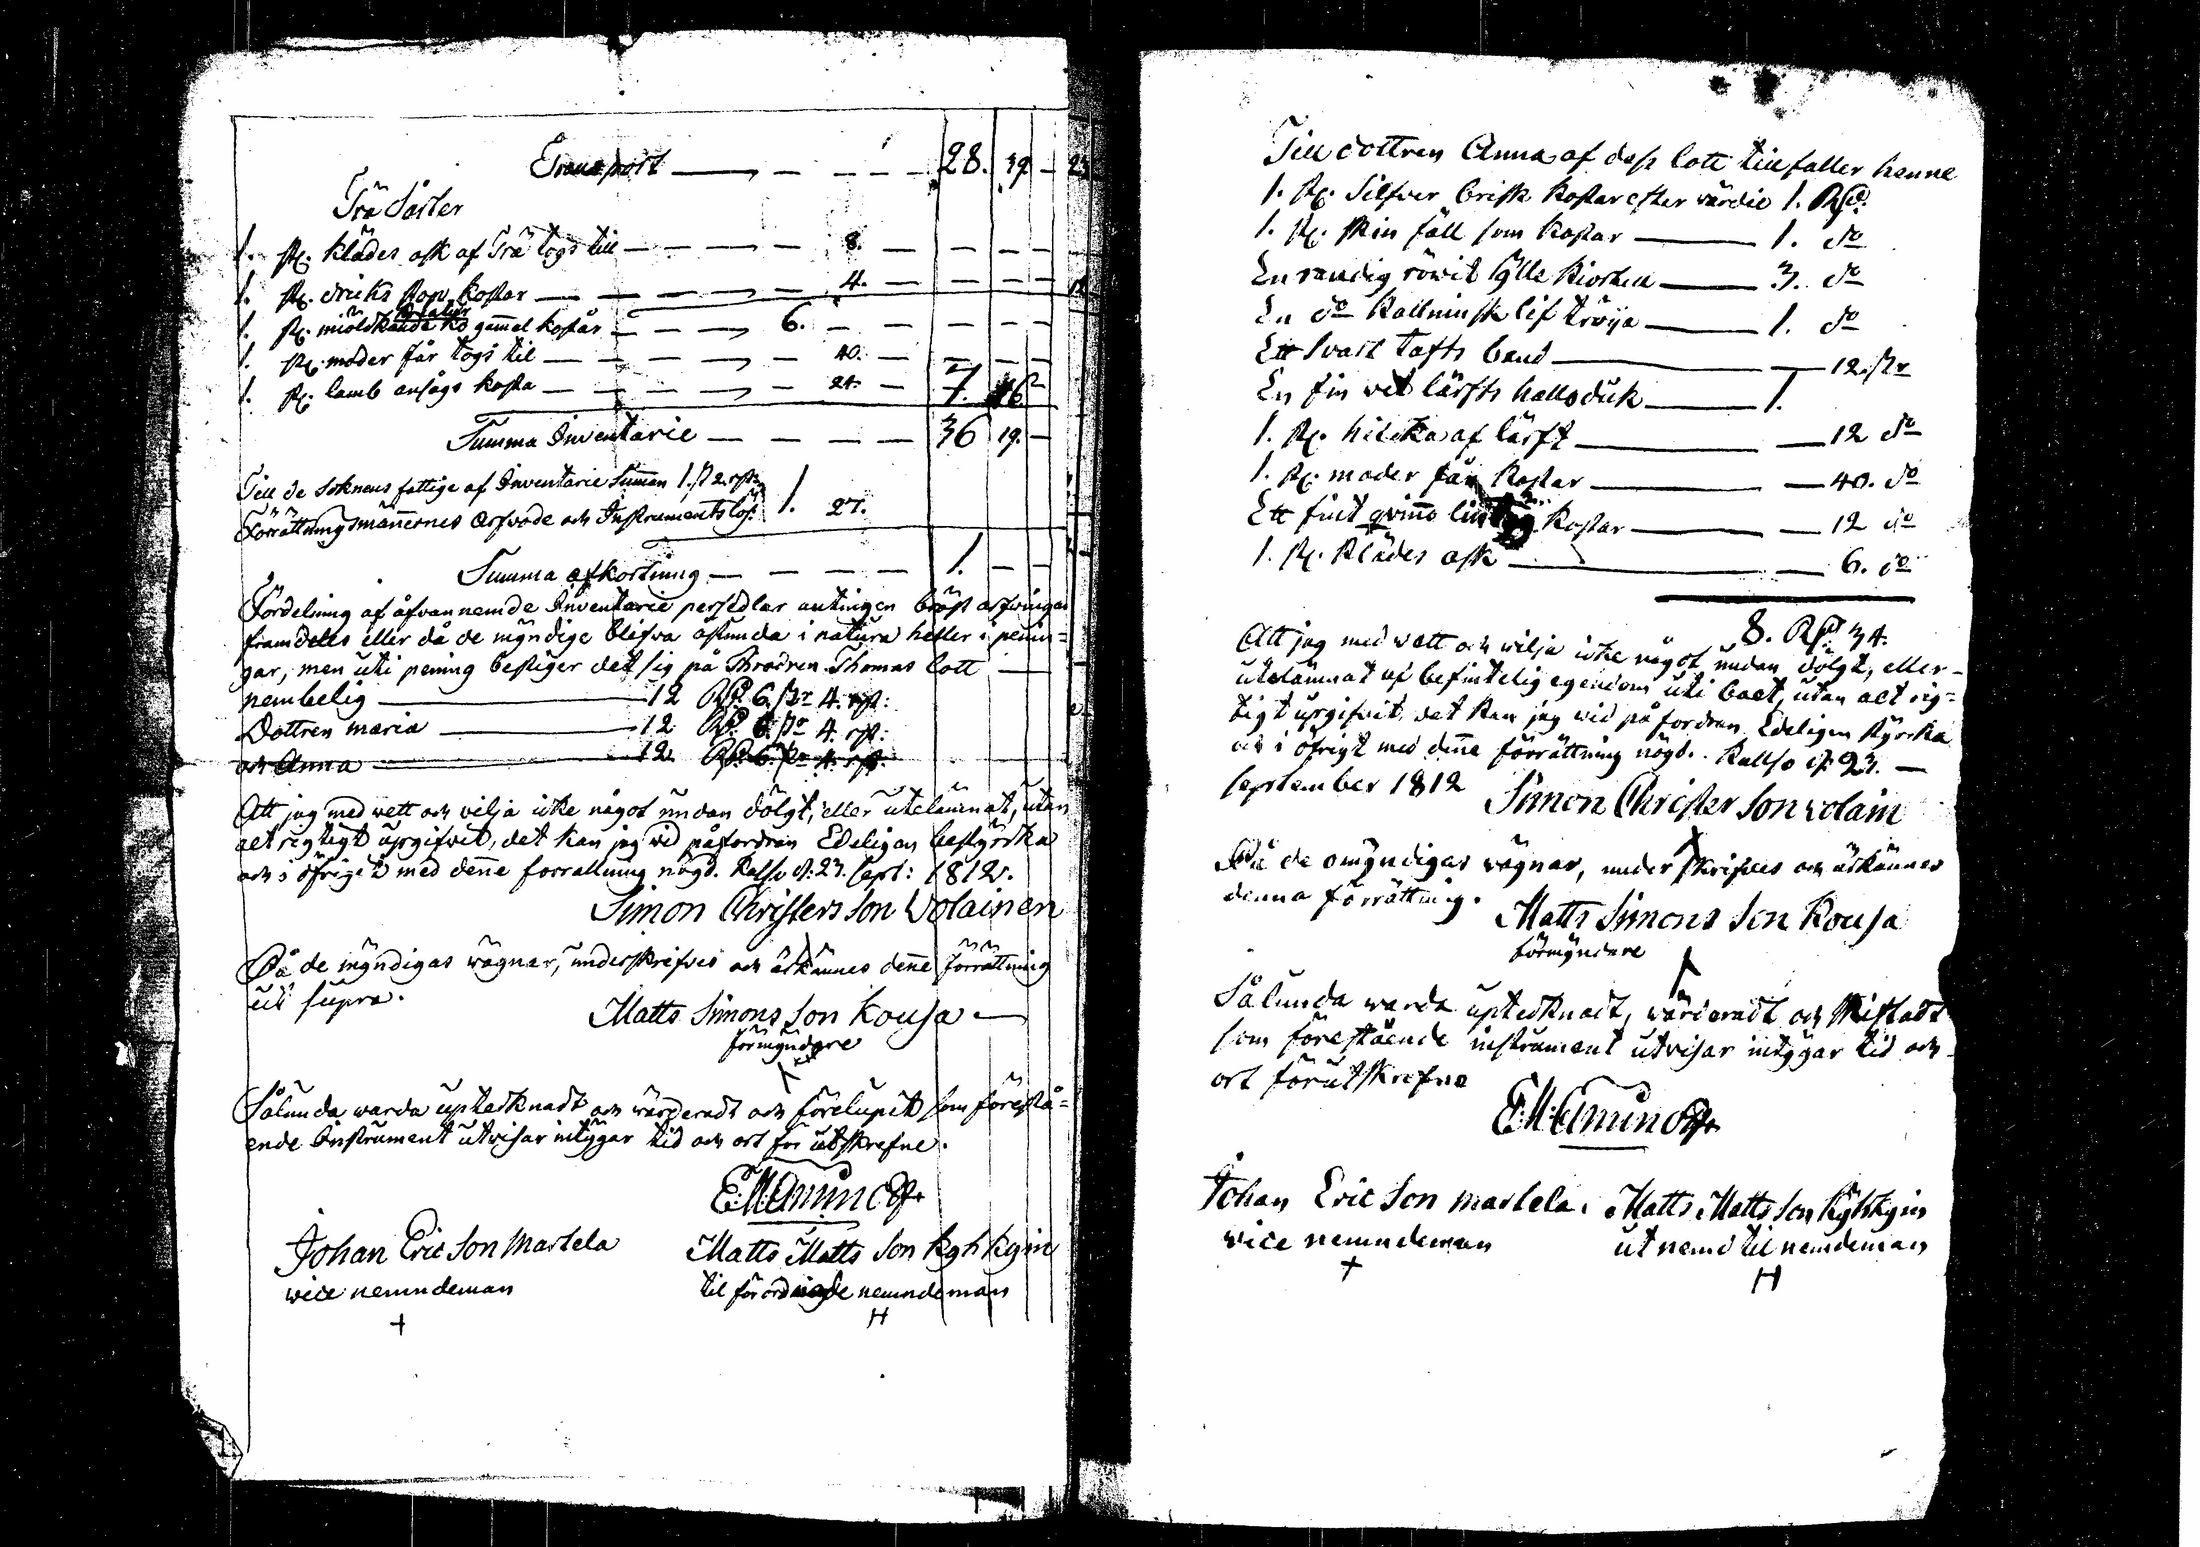 Transport — — — — 28. 39 —
Trä Saker
1. st. klädes ask af Trä togs till — — — 8. — — — —
1. st. dricks stop kostar — — — — 4. — — — —
1. st. miölkande ko gamal kostar — — — 6. — — — —
1. st. moder får togs til — — — — 40. —
1. st. lamb ansågs kosta — — — — 24. — 7. 16 —
Summa Inventarie — — — — 36 19. —
Till de Soknens fattige af Inventarie Summan
Förrättningsmännernes Arfvode och Instruments lös: 1. 27.
Summa afkortning — — — — 1. — —
Fördelning af åfvannemde Inventarie persedlar antingen bröst arfwingar
framdeles eller då de myndige blifva åstunda i natura heller i penin=
gar, men uti pening bestiger det sig på Brodren Thomas lott
nembelig — 12 Rd. 6. sr 4. rst:
Dottren maria — 12 Rd. 6. sr 4. rst:
och Anna — 12 Rd. 6. sr 4. rst:
Att jag med wett och vilja icke något undan dölgt, eller utelämnat, utan
alt rigtigt upgifvit, det kan jag vid påfordran Edeligen bestyrka
och i öfrigit med denne forrattning nögd. Kallso d. 23. Sept: 1812.
Simon Christers Son Wolainen
På de myndigas wägnar, underskrifves och ärkännes denne förrättning
ut supra.
Matts Simons Son Kousa —
förmyndare
Sålunda warda uptecknadt och wärderadt och förelupit som förestå=
ende Instrument utvisar intygar tid och ort för utskrefne.
Johan Eric Son Martela Matts Matts Son Kyhkyin
vice nemndeman til förordnade nemndeman
+ H
Till dottren Anna af dess lott tillfaller henne
1. st. Silfver brisk kostar efter värdie 1. Rd.
1. st. skin fäll som kostar — 1. do
En randig röwit Ylle kiortell — 3. do
En do Kallminsk lif tröija — 1. do
Ett Svart tafts band — 12. sr
En fin vit lärfts hallsduk — 1.
1. st. hilcka af lärft — 12 do
1. st. moder får kostar — 40. do
Ett fint qvinno kostar — 12 do
1. st. klädes ask — 6. do
8. Rd 34.
Att jag med wett och wilja icke något undan dölgt, eller
utelämnat af befintelig egendom uti boet, utan alt rig=
tigt upgifvit, det kan jag vid på fordran Edeligen styrcka
och i öfrigt med denne förrättning nögd. Kallso d. 23. —
September 1812 Simon Christer Son Wolain
På de omyndigas wägnar, under skrifves och ärkännes
denna förrättning.
Matts Simons Son Kousa
förmyndare
Sålunda warda uptecknadt, wärderadt och skiftadt
som förestående instrument utvisar intygar tid och
ort förutskrefne
Johan Eric Son Martela. Matts Matts Son Kyhkyin
vice nemndeman ut nemd til nemdeman
+ H